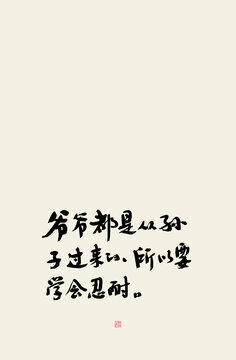 爷爷都是从孙
子过来的、所以要
学会忍耐。